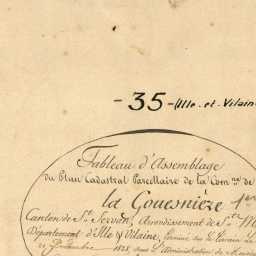 - 35 - (Ille-et-Vilaine
Tableau d'Assemblage
du Plan Cadastral Parcellaire de la Com.ne de
la Gouesnière
Canton de S.t Servan, Arrondissement de S.t M
Département d'Ille & Vilaine, terminé sur le terrain le
l'administration de